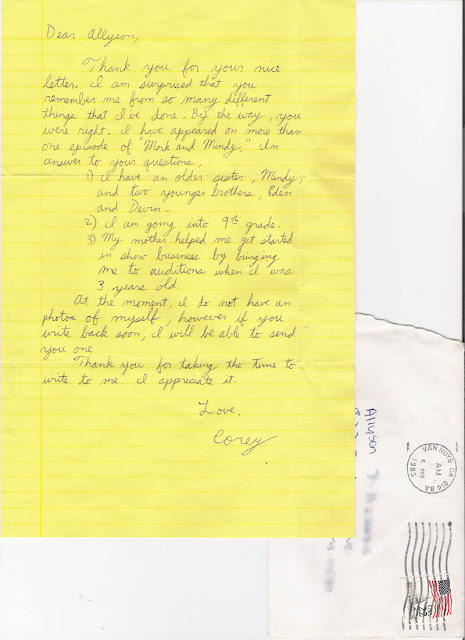 Dear Allyson,
Thank you for your nice
letter. I am surprised that you
remember me from so many different
things that I've done. By the way, you
were right. I have appeared on more than
one episode of "Mork and Mindy." In
answer to your questions,
1) I have an older sister, Mindy,
and two younger brothers, Eden
and Devin.
2) I am going into 9th grade.
3) My mother helped me get started
in show business by bringing
me to auditions when I was
3 years old.
At the moment, I do not have an
photos of myself, however if you
write back soon, I will be able to send
you one
Thank you for taking the time to
write to me. I appreciate it.
Love,
Corey
Allyson
VAN NUYS CA
AM
1985